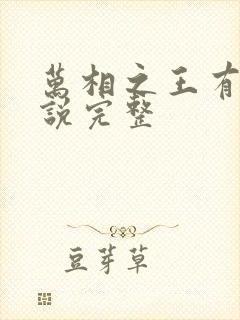 萬相之王有
說完整
豆芽草